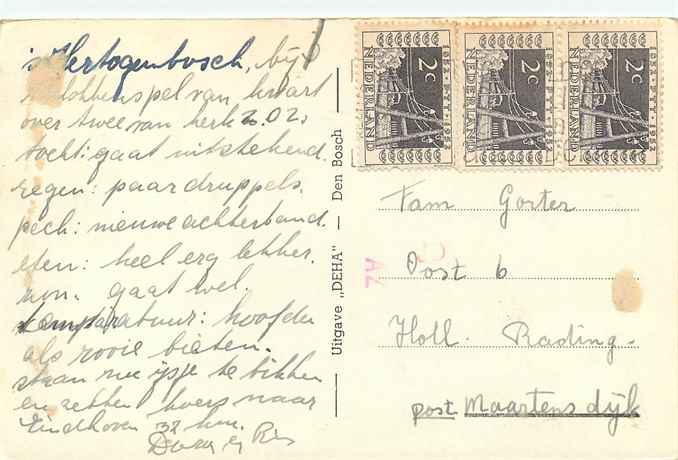 's Hertogenbosch, bij
klokkenspel van kwart
over twee van kerk
tocht: gaat uitstekend.
regen: paar druppels.
pech: nieuwe achterband.
eten: heel erg lekker.
zon. gaat wel.
temperatuur: hoofden
als rooie bieten.
staan nu ijsje te bikken
en zetten koers naar
Eindhoven 32 km.
Uitgave „DEHA” — Den Bosch
2c
NEDERLAND
1852-PTT-1952
2c
NEDERLAND
1852-PTT-1952
2c
NEDERLAND
1852-PTT-1952
Fam Gorter
Post 6
Holl. Rading.
post Maartensdijk
AZ